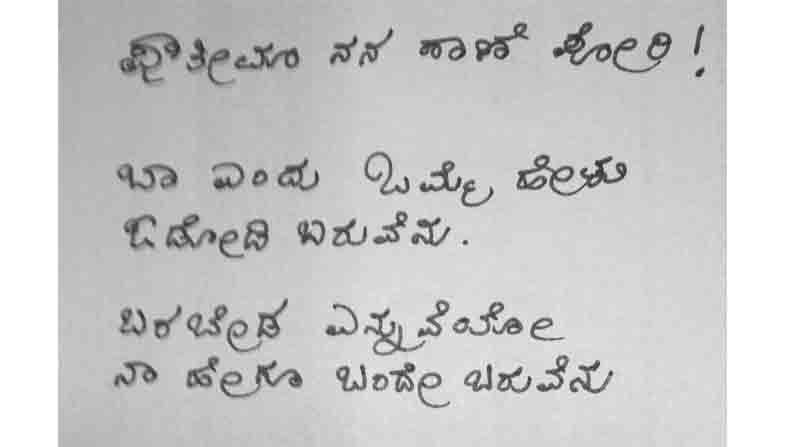 ನನ ಪೋರಿ !
ಬಾ ಎಂದು ಒಮ್ಮೆ ಹೇಳು
ಓಡೋಡಿ ಬರುವೆನು.
ಬರಬೇಡ ಎನ್ನುವೆಯೋ
ನಾ ಹೇಗೂ ಬಂದೇ ಬರುವೆನು